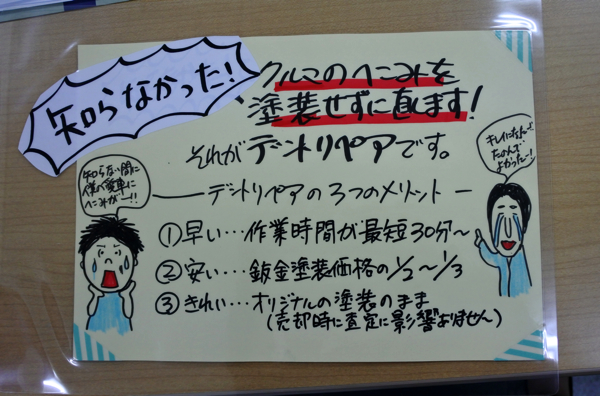 知らなかった!
クルマのヘコミを
塗装せずに直します!
それがデントリペアです。
知らない間に
僕の愛車に
ヘコミがー!!
キレイになんて
たのんで
よかったー!
デントリペアの3つのメリット
①早い…作業時間が最短30分~
②安い…鈑金塗装価格の1/2~1/3
③きれい…オリジナルの塗装のまま
(売却時に査定に影響ありません)